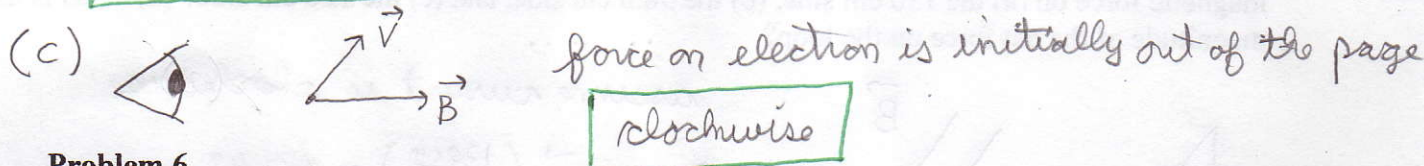 (c) V⃗ force on election is initially out of the page
B⃗
clochwise
Problem 6